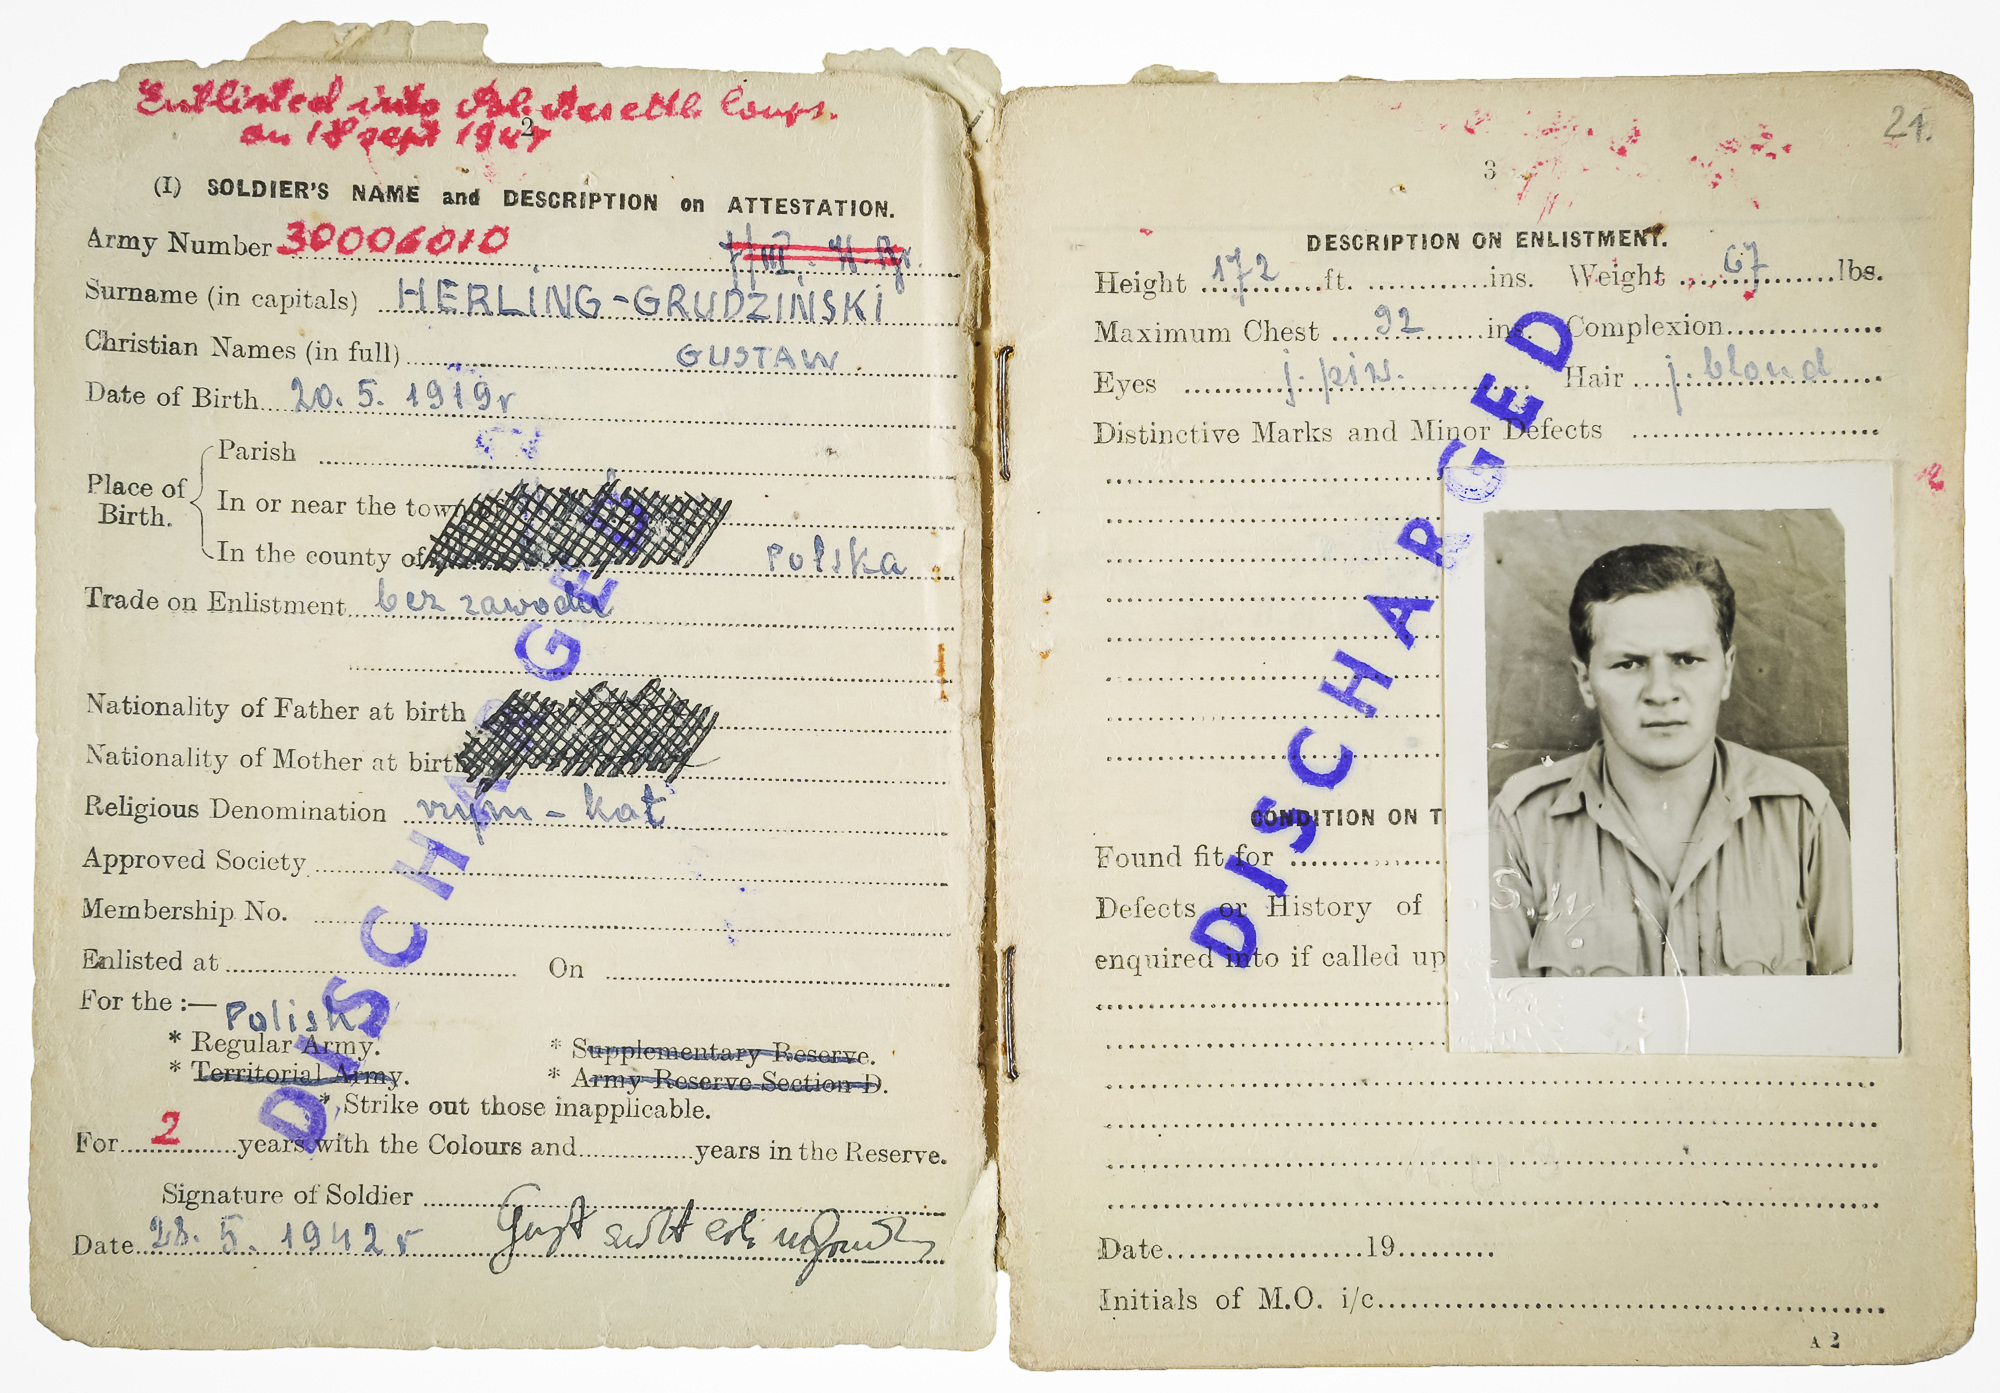 Enllisted into Pol. Resettl. Corps.
on 18 sept 1947
2
(I) SOLDIER'S NAME and DESCRIPTION on ATTESTATION.
Army Number 30006010
Surname (in capitals) HERLING-GRUDZIŃSKI
Christian Names (in full) GUSTAW
Date of Birth 20. 5. 1919r
Place of Birth.
Parish
In or near the town of
In the county of Polska
Trade on Enlistment bez zawodu
Nationality of Father at birth
Nationality of Mother at birth
Religious Denomination rzym-kat
Approved Society
Membership No.
Enlisted at On
For the :— Polish
* Regular Army. * Supplementary Reserve.
* Territorial Army. * Army Reserve Section D.
* Strike out those inapplicable.
For 2 years with the Colours and years in the Reserve.
Signature of Soldier
Date 28. 5. 1942r
DISCHARGED
21.
3
DESCRIPTION ON ENLISTMENT.
Height 172 ft. ins. Weight 67 lbs.
Maximum Chest 92 ins. Complexion
Eyes j. piw. Hair j. blond
Distinctive Marks and Minor Defects
CONDITION ON T
Found fit for
Defects or History of
enquired into if called up
Date 19
Initials of M.O. i/c
A 2
DISCHARGED